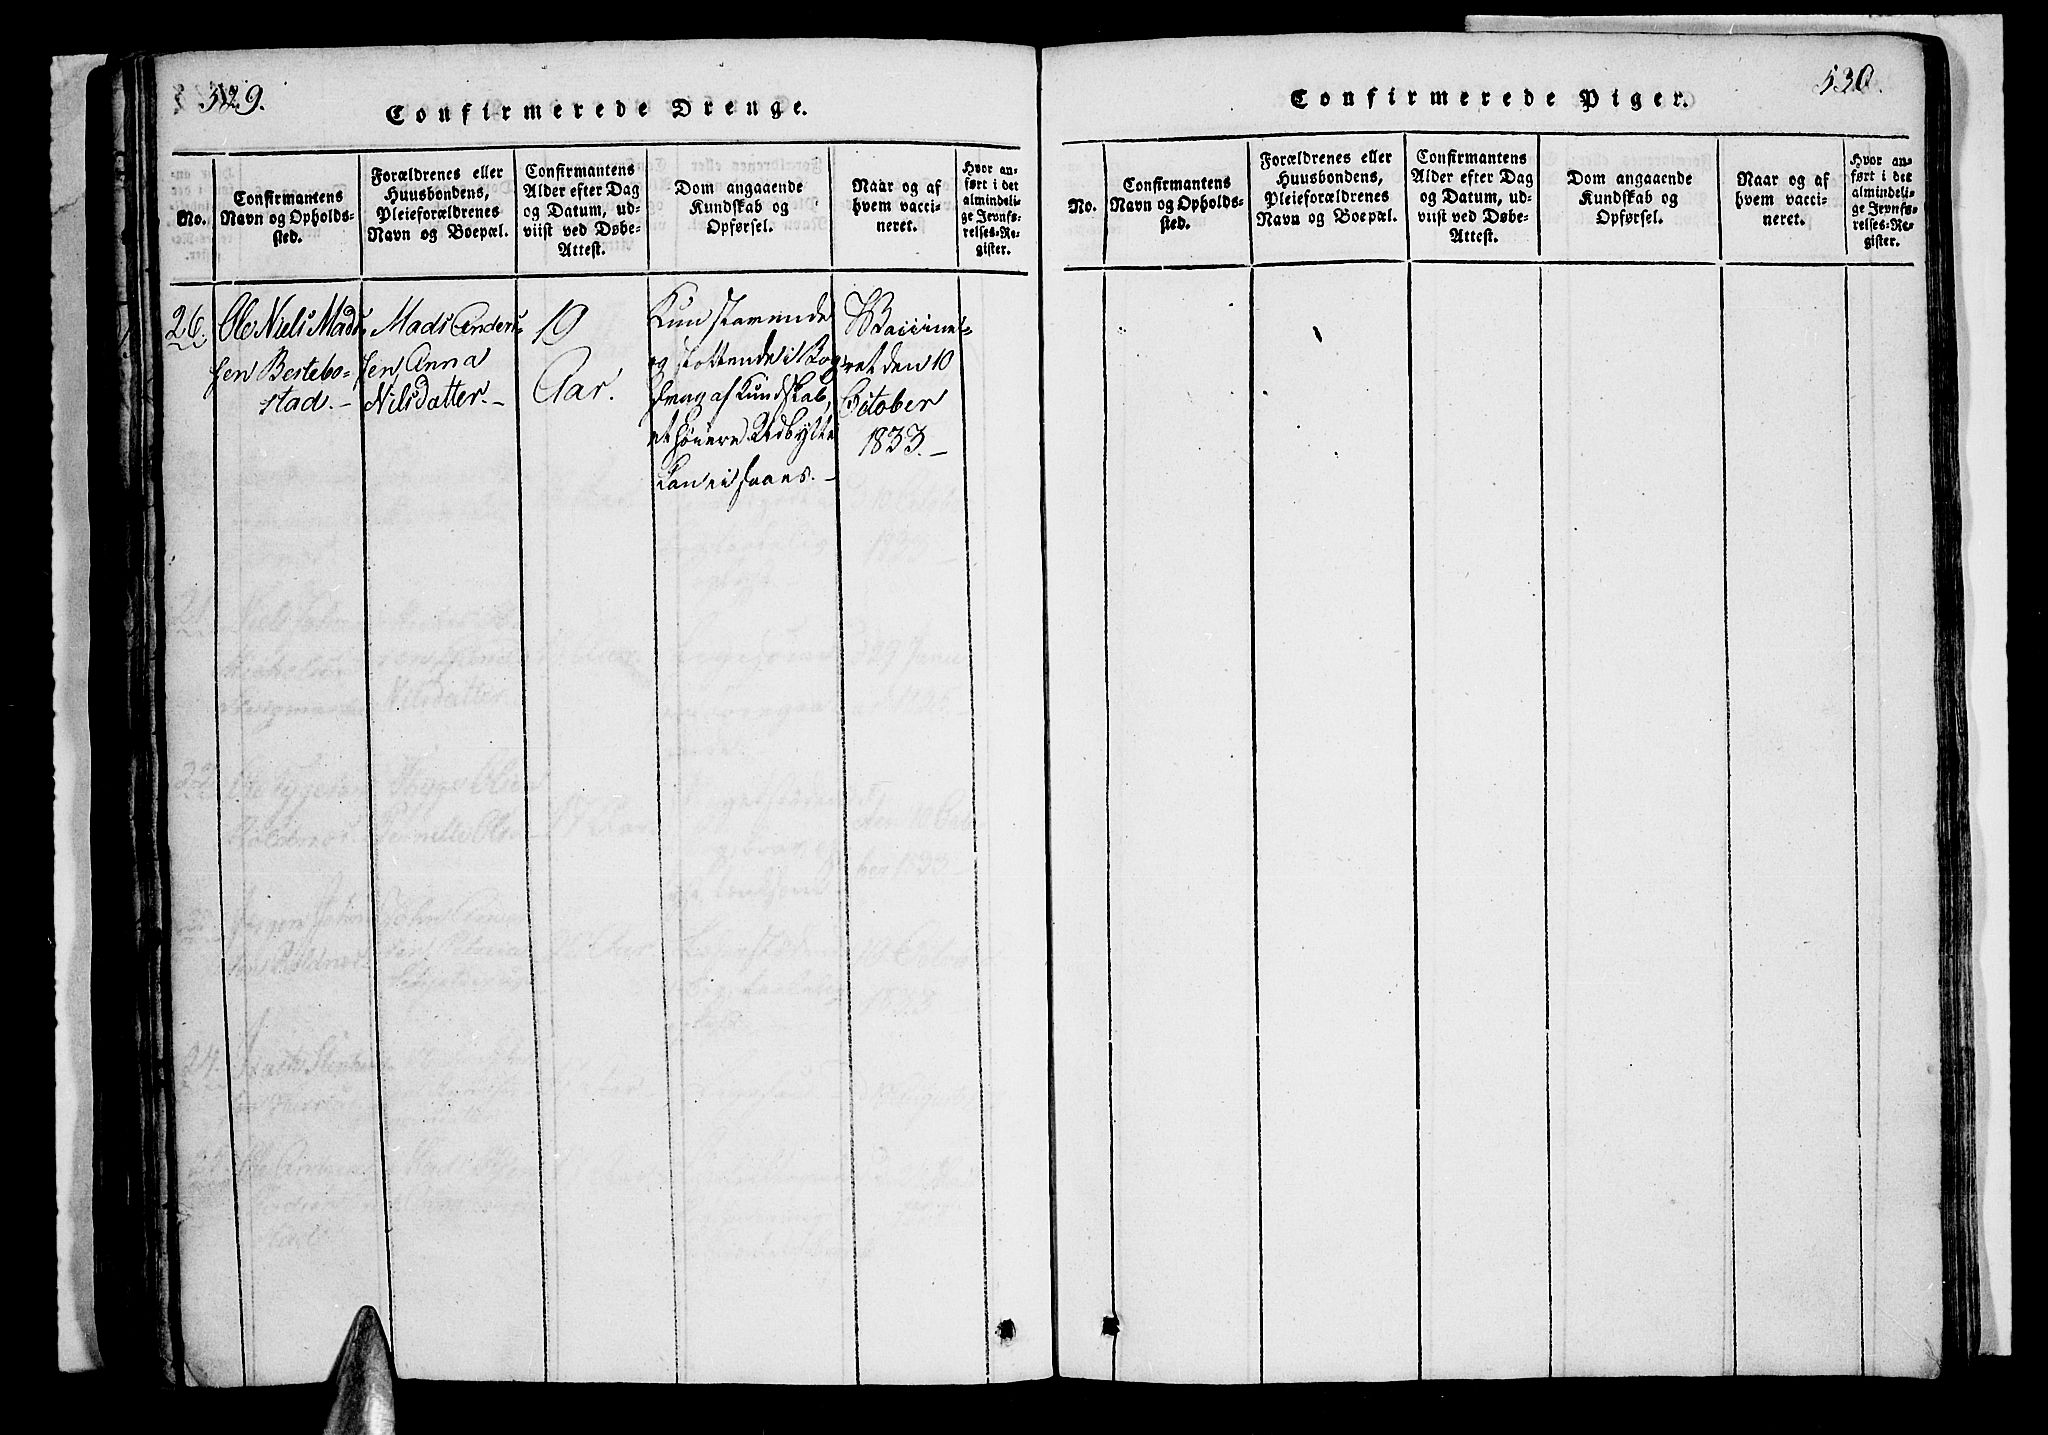 529.
Confirmerede Drenge.
No.
Confirmantens
Navn og Opholds-
sted.
Forældrenes eller
Huusbondens,
Pleieforældrenes
Navn og Boepæl.
Confirmantens
Alder efter Dag
og Datum, ud-
viist ved Døbe-
Attest.
Dom angaaende
Kundskab og
Opførsel.
Naar og af
hvem vacci-
neret.
Hvor an-
ført i det
almindeli-
ge Jevnfø-
relses-Re-
gister.
26.
Ole Niels Mad-
sen Bestebo-
stad.
Mads Anders-
sen Anna
Nilsdatter.
19
Aar.
Kun stavende
og stottende i Bog
svag af Kundskab,
et høiere Udbytte
kan ei haaes.
Vaccine-
ret den 10
October
1833.
530.
Confirmerede Piger.
No.
Confirmantens
Navn og Opholds-
sted.
Forældrenes eller
Huusbondens,
Pleieforældrenes
Navn og Boepæl.
Confirmantens
Alder efter Dag
og Datum, ud-
viist ved Døbe-
Attest.
Dom angaaende
Kundskab og
Opførsel.
Naar og af
hvem vacci-
neret.
Hvor an-
ført i det
almindeli-
ge Jevnfø-
relses-Re-
gister.